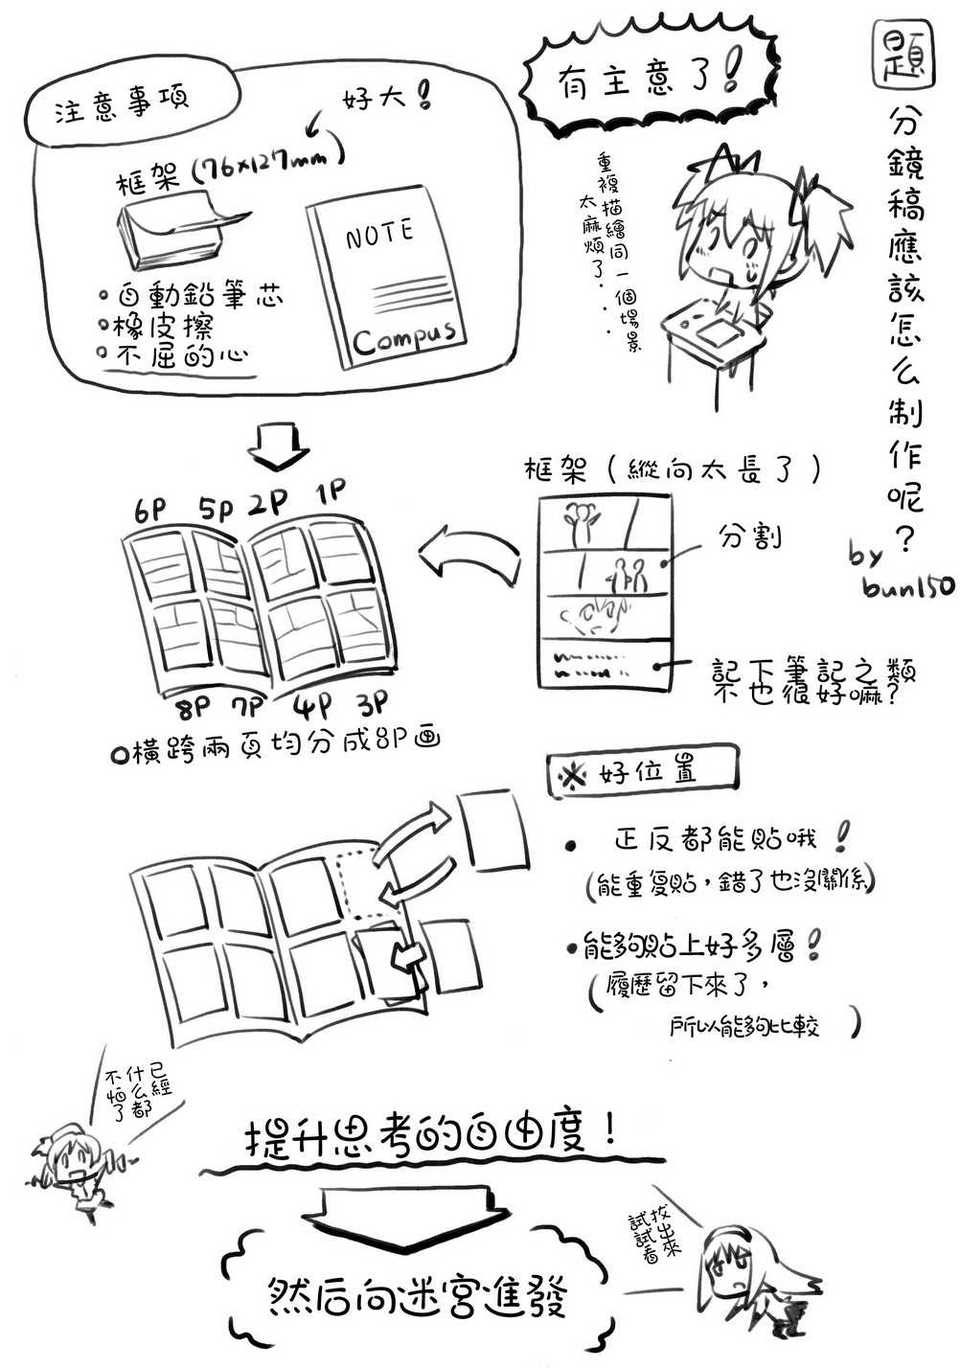 題
分鏡稿應該怎么制作呢?
by
bun150
有主意了!
重複描繪同一個場景
太麻煩了...
注意事項
好大!
框架(76×127mm)
NOTE
Compus
•自動鉛筆芯
•橡皮擦
•不屈的心
框架(縱向太長了)
分割
記下筆記之類
不也很好嘛?
6P 5P 2P 1P
8P 7P 4P 3P
○橫跨兩頁均分成8P画
※好位置
• 正反都能貼哦!
(能重复貼,錯了也沒關係)
•能夠貼上好多層!
(履歷留下來了,
所以能夠比較)
已經都
什么
不怕了
提升思考的自由度!
拔出來
試試看
然后向迷宮進發